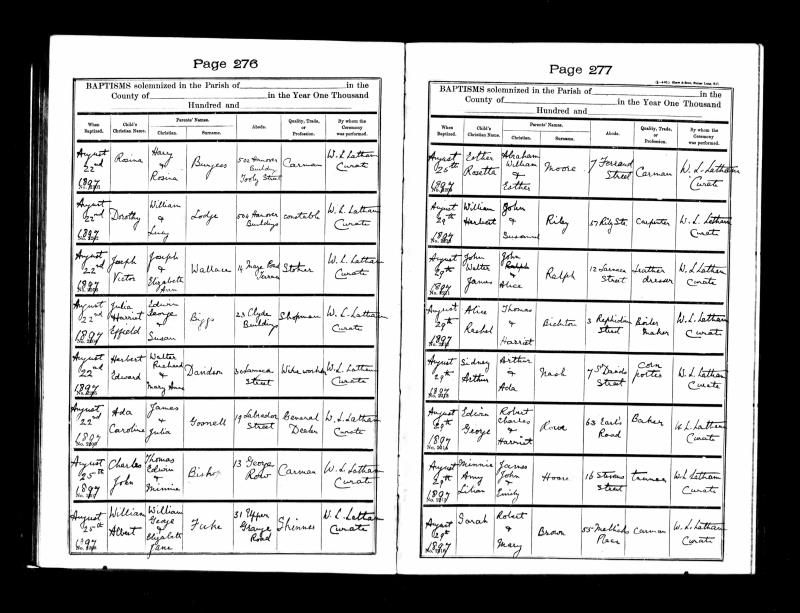 Page 276
BAPTISMS solemnized in the Parish of in the
County of in the Year One Thousand
Hundred and
When Baptized. Child's Christian Name. Parents' Names. Christian. Surname. Abode. Quality, Trade, or Profession. By whom the Ceremony was performed.
August 22nd 1897 Rosina Harry & Rosina Burgess 502 Hanover Building Tooly Street Carman W. L. Latham Curate
August 22nd 1897 Dorothy William & Lucy Lodge 504 Hanover Buildings constable W. L. Latham Curate
August 22nd 1897 Joseph Victor Joseph & Elizabeth Ann Wallace 14 Maze Pond Stoker W. L. Latham Curate
August 22nd 1897 Julia Harriet Effield Edwin George & Susan Biggs 23 Clyde Buildings Shopman W. L. Latham Curate
August 22nd 1897 Herbert Edward Walter Richard & Mary Anne Davidson Street W. L. Latham Curate
August 22nd 1897 Ada Caroline James & Julia 19 Labrador Street General Dealer W. L. Latham Curate
August 25th 1897 Charles John Thomas Edwin & Minnie Bishop 13 George Row Carman W. L. Latham Curate
August 25th 1897 William Albert William George & Elizabeth Jane 31 Upper Grange Road Skinner W. L. Latham Curate
Page 277
BAPTISMS solemnized in the Parish of in the
County of in the Year One Thousand
Hundred and
When Baptized. Child's Christian Name. Parents' Names. Christian. Surname. Abode. Quality, Trade, or Profession. By whom the Ceremony was performed.
August 25th 1897 Esther Rosetta Abraham William & Esther Moore 7 Street Carman W. L. Latham Curate
August 29th 1897 William Herbert John & Susannah Riley 57 Riley Ste. Carpenter W. L. Latham Curate
August 29th 1897 John Walter James John Ralph & Alice Ralph 12 Street Leather dresser W. L. Latham Curate
August 29th 1897 Alice Rachel Thomas & Harriet 3 Rephidim Street Boiler Maker W. L. Latham Curate
August 29th 1897 Sidney Arthur Arthur & Ada Nash 7 St Davids Street Corn Porter W. L. Latham Curate
August 29th 1897 Edwin George Robert Charles & Harriet Rowe 63 Earl's Road Baker W. L. Latham Curate
August 29th 1897 Minnie Amy Lilian James John & Emily Hoare 16 Stevens Street Tanner W. L. Latham Curate
August 29th 1897 Sarah Robert & Mary Brown 55 Mellish Place Carman W. L. Latham Curate